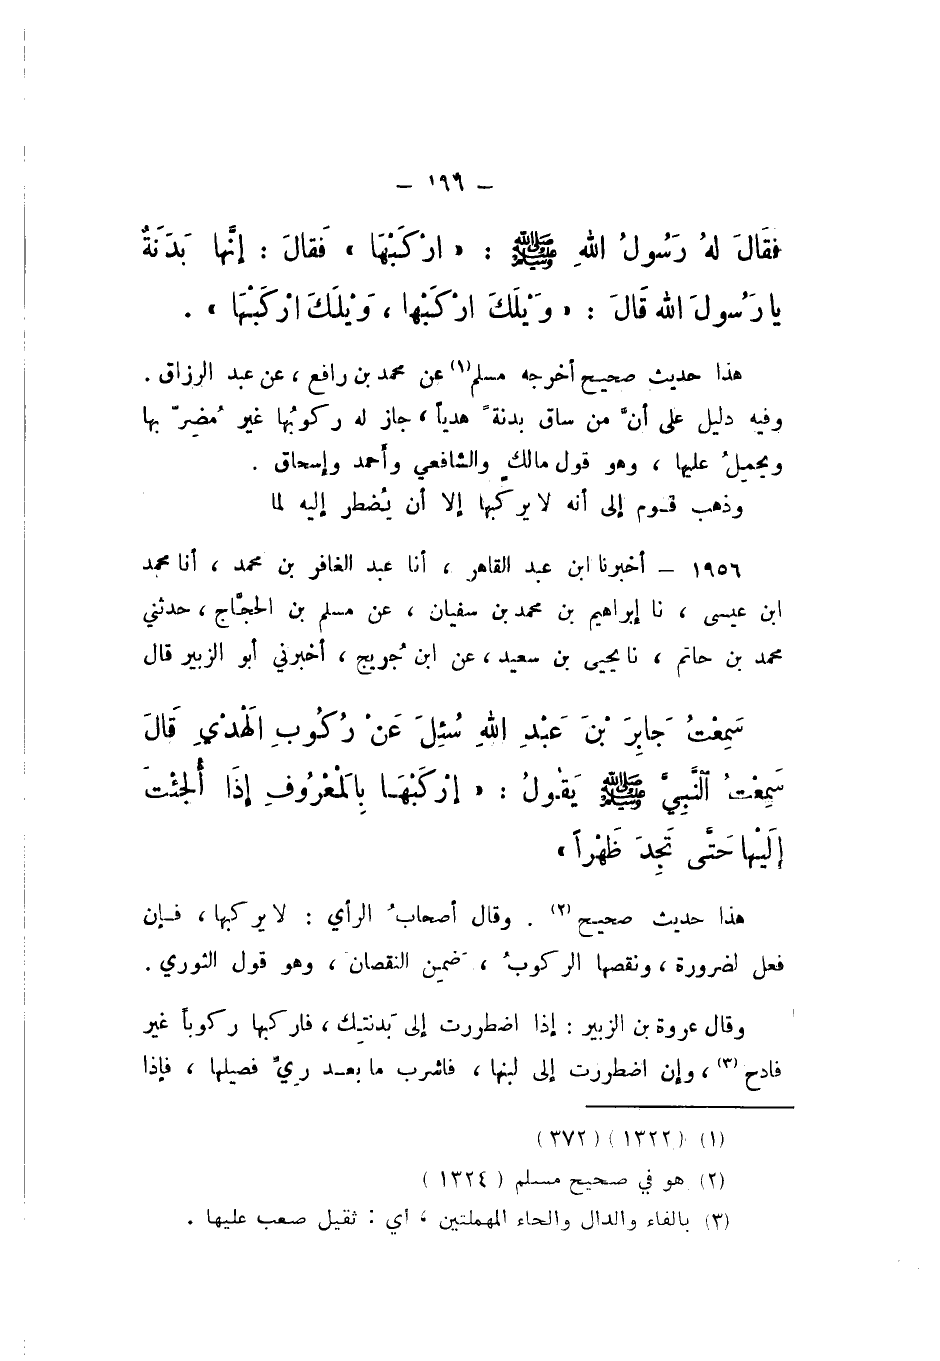 – ١٩٦ –
فَقَالَ لهُ رَسُولُ اللهِ ﷺ : « ارْكَبْهَا » فَقالَ : إنَّها بَدَنَةٌ
يا رَسُولَ الله قَالَ : « وَيْلَكَ ارْكَبْها ، وَيْلَكَ ارْكَبْهَا » .
هذا حديث صحيح أخرجه مسلم(١) عن محمد بن رافع ، عن عبد الرزاق .
وفيه دليل على أنَّ من ساق بدنةً هدياً ، جاز له ركوبُها غير مُضِرّ بها
ويحمِلُ عليها ، وهو قول مالكٍ والشافعي وأَحمد وإسحاق .
وذهب قوم إلى أنه لا يركبها إلا أن يُضطر إليه لما
١٩٥٦ – أخبرنا ابن عبد القاهر ، أنا عبد الغافر بن محمد ، أنا محمد
ابن عيسى ، نا إبراهيم بن محمد بن سفيان ، عن مسلم بن الحجَّاج ، حدثني
محمد بن حاتم ، نا يحيى بن سعيد ، عن ابن جُريج ، أخبرني أبو الزبير قال
سَمِعْتُ جَابِرَ بْنَ عَبْدِ اللهِ سُئِلَ عَنْ رُكُوبِ الهَدْيِ قَالَ
سَمِعْتُ ٱلنَّبِيَّ ﷺ يَقُولُ : « إرْكَبْهَا بِالمَعْرُوفِ إذَا أُلجِئْتَ
إلَيْها حَتَّى تَجِدَ ظَهْراً »
هذا حديث صحيح(٢) . وقال أصحابُ الرأي : لا يركبها ، فإن
فعل لضرورة ، ونقصها الركوبُ ، ضَمِن النقصان ، وهو قول الثوري .
وقال عروة بن الزبير : إذا اضطررت إلى بَدنتِك ، فاركبها ركوباً غير
فادح(٣) ، وإن اضطررت إلى لبنها ، فاشرب ما بعد ريِّ فصيلها ، فإذا
(١) (١٣٢٢) (٣٧٢)
(٢) هو في صحيح مسلم (١٣٢٤)
(٣) بالفاء والدال والحاء المهملتين ، أي : ثقيل صعب عليها .